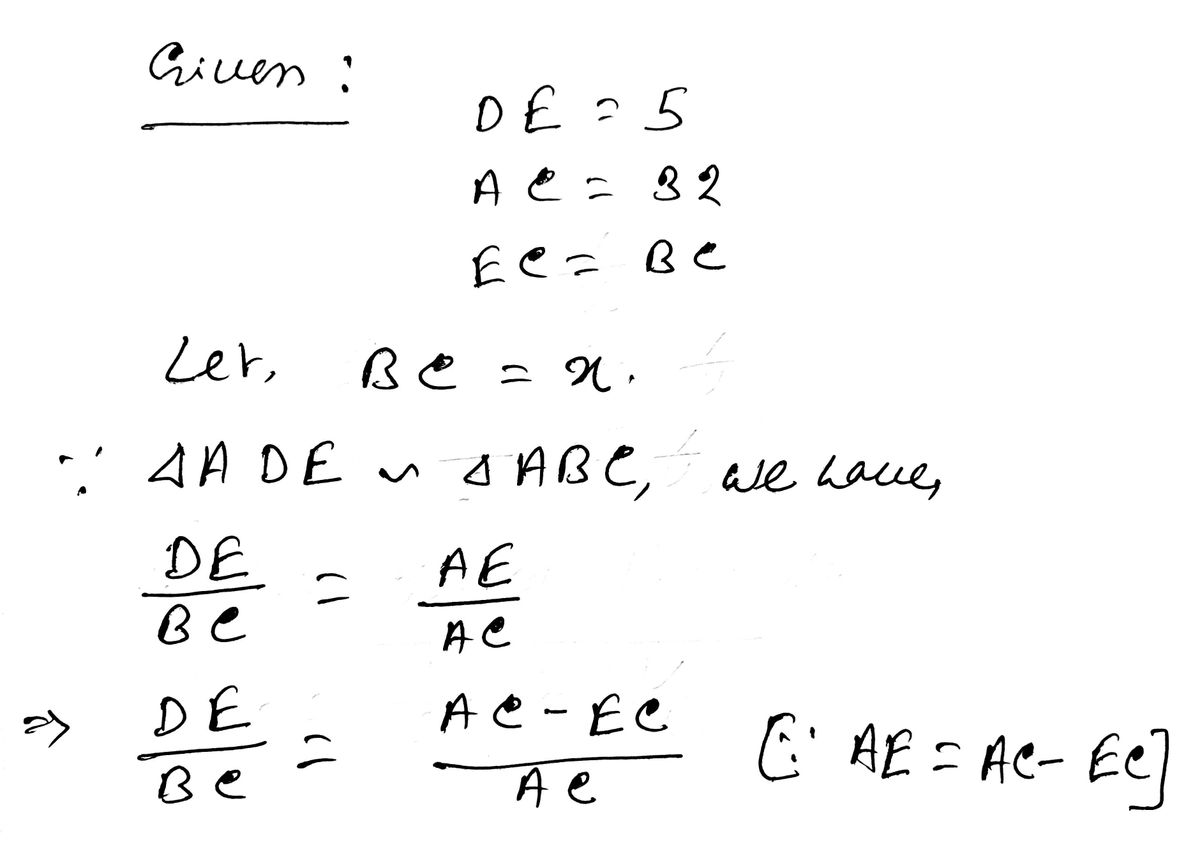 Given :
DE = 5
AC = 32
EC = BC
Let, BC = x.
∵ ΔADE ~ ΔABC, we have,
DE/BC = AE/AC
⇒ DE/BC = (AC - EC)/AC [∵ AE = AC - EC]